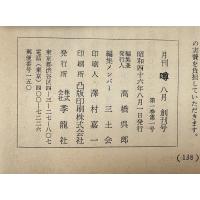 の古賀を担当していただきます。
月刊 噂 八月 創刊号
第一巻第一号
昭和四十六年八月一日発行
編集兼発行人 高橋呉郎
編集メンバー 三土会
印刷人 澤村嘉一
印刷所 凸版印刷株式会社
発行所 株式会社 季龍社
東京都渋谷区四-三-二七-八〇七
電話(東京)四〇〇-七二二六
郵便番号一五〇
(138)